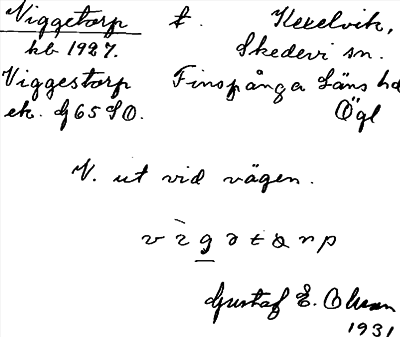 Viggetorp t. Kexelvik,
kb 1927. Skedevi sn.
Viggestorp Finspånga Läns hd
ek. G 65 SO. Ögl
V. ut vid vägen.
Gustaf E. Olsson
1931